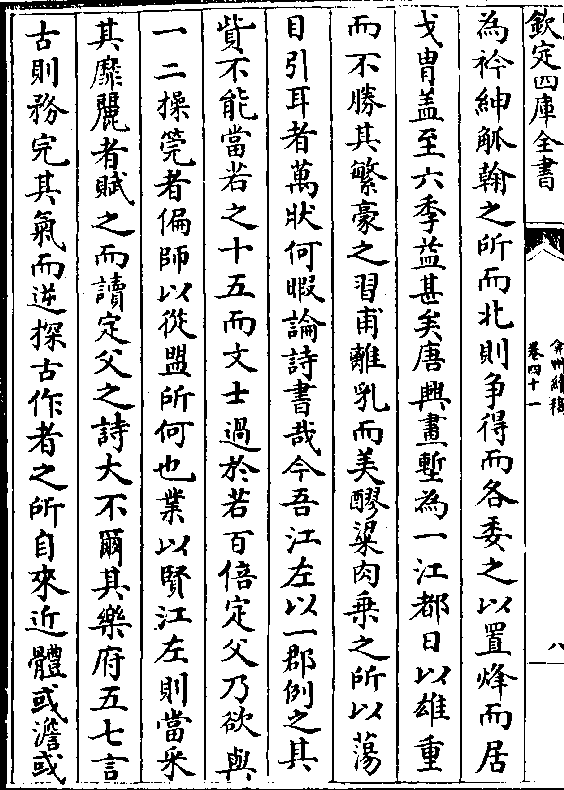 欽定四庫全書
弇州續稿
卷四十一
八
為衿紳觚翰之所而北則爭得而各委之以置烽而居
戈冑盖至六季益甚矣唐興畫塹為一江都日以雄重
而不勝其繁豪之習甫離乳而美醪粱肉乗之所以蕩
目引耳者萬狀何暇論詩書哉今吾江左以一郡例之其
貲不能當若之十五而文士過於若百倍定父乃欲與
一二操筦者偏師以從盟所何也業以賢江左則當采
其靡麗者賦之而讀定父之詩大不爾其樂府五七言
古則務完其氣而逆探古作者之所自來近體或澹或